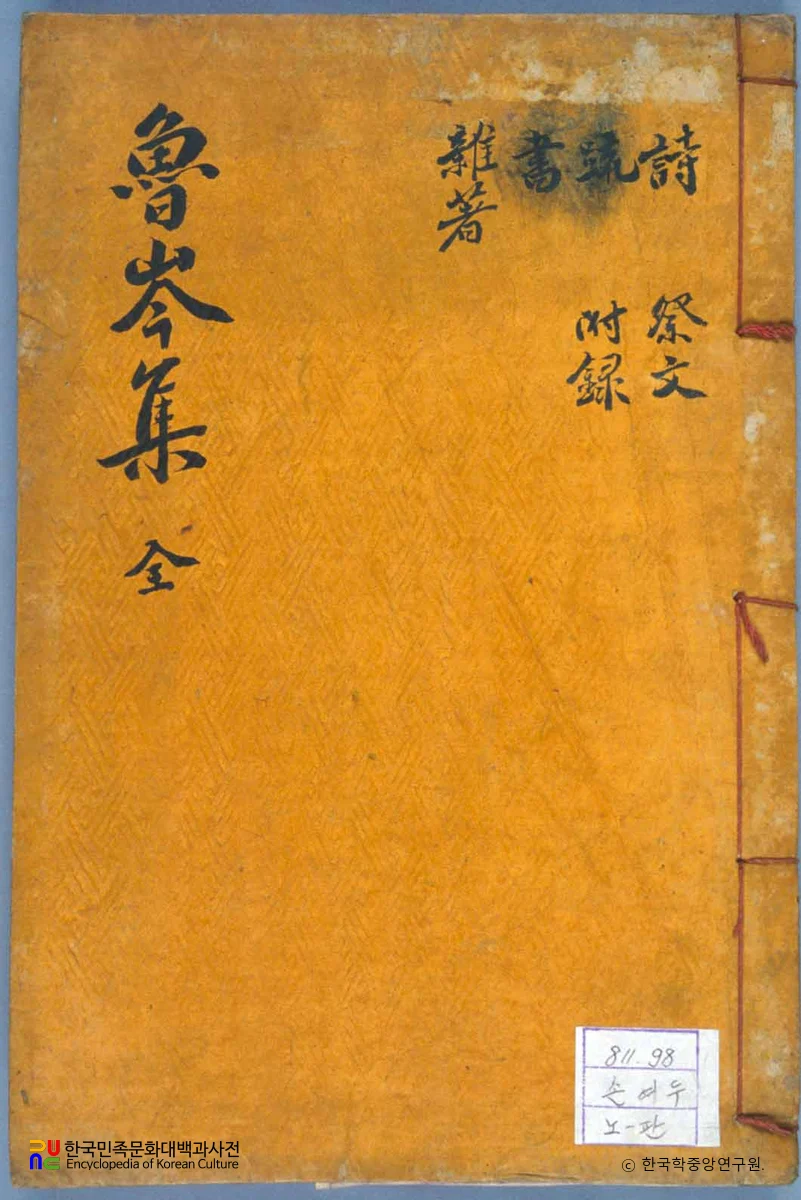 魯岑集 全
詩
疏
書
雜著
祭文
附録
811.98
손여두
노-판
한국민족문화대백과사전
Encyclopedia of Korean Culture
© 한국학중앙연구원.